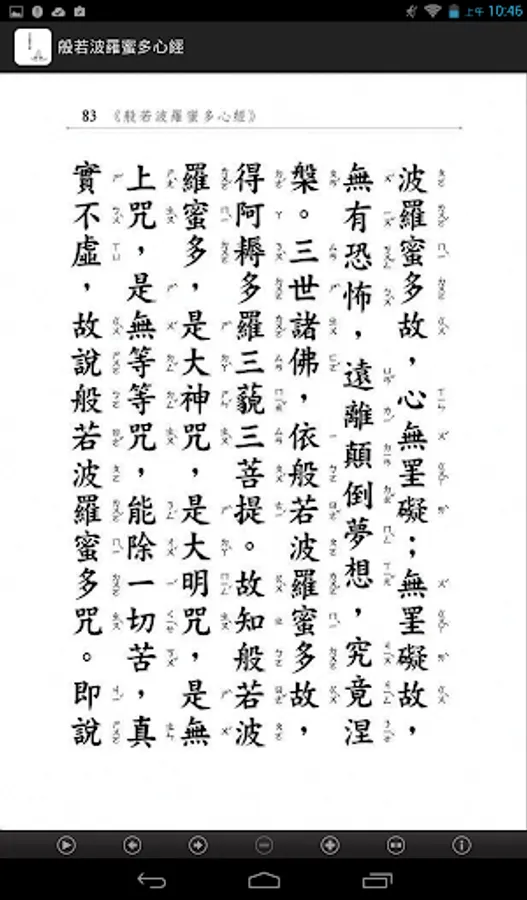 上午 10:46
般若波羅蜜多心經
83 《般若波羅蜜多心經》
波羅蜜多故，心無罣礙；無罣礙故，
無有恐怖，遠離顛倒夢想，究竟涅
槃。三世諸佛，依般若波羅蜜多故，
得阿耨多羅三藐三菩提。故知般若波
羅蜜多，是大神咒，是大明咒，是無
上咒，是無等等咒，能除一切苦，真
實不虛，故說般若波羅蜜多咒。即說